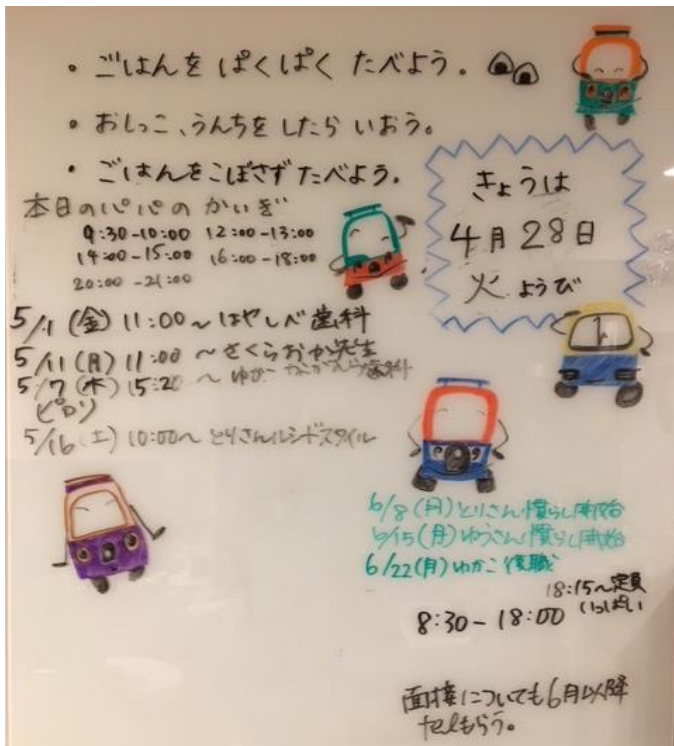 ・ごはんを ぱくぱく たべよう。
・おしっこ、うんちをしたら いおう。
・ごはんをこぼさず たべよう。
きょうは
4月28日
火ようび
本日のパパの かいぎ
9:30-10:00 12:00-13:00
14:00-15:00 16:00-18:00
20:00-21:00
5/1(金)11:00〜はやしべ歯科
5/11(月)11:00 〜さくらおか先生
5/7(木)15:20 〜ゆかこ 歯科
ピロリ
5/16(土)10:00〜とりさんルシードスタイル
6/8(月)とりさん慣らし開始
6/15(月)ゆうさん慣らし開始
6/22(月)ゆかこ復職
18:15〜定員
いっぱい
8:30-18:00
面接についても6月以降
telもらう。